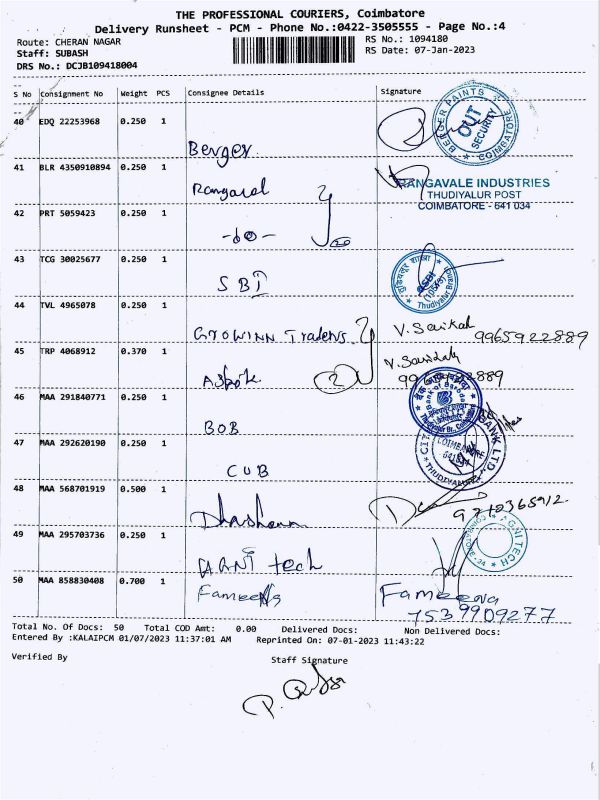 THE PROFESSIONAL COURIERS, Coimbatore
Delivery Runsheet - PCM - Phone No.:0422-3505555 - Page No.:4
Route: CHERAN NAGAR
Staff: SUBASH
DRS No.: DCJB109418004
RS No.: 1094180
RS Date: 07-Jan-2023
S No Consignment No Weight PCS Consignee Details Signature
40 EDQ 22253968 0.250 1 Berger
BERGER PAINTS COIMBATORE OUT SECURITY
41 BLR 4350910894 0.250 1 Rangaval
RANGAVALE INDUSTRIES
THUDIYALUR POST
COIMBATORE - 641 034
42 PRT 5059423 0.250 1 -do-
43 TCG 30025677 0.250 1 SBI
44 TVL 4965078 0.250 1 GROWINN Traders 9965922889
45 TRP 4068912 0.370 1 Ashok 2
46 MAA 291840771 0.250 1 BOB
Bank of Baroda
47 MAA 292620190 0.250 1 CUB
COIMBATORE
THUDIYALUR
BANK LTD.
48 MAA 568701919 0.500 1 Dharshann
49 MAA 295703736 0.250 1 AGNI tech
AGNI TECH
50 MAA 858830408 0.700 1
7539909277
Total No. Of Docs: 50 Total COD Amt: 0.00 Delivered Docs: Non Delivered Docs:
Entered By :KALAIPCM 01/07/2023 11:37:01 AM Reprinted On: 07-01-2023 11:43:22
Verified By Staff Signature